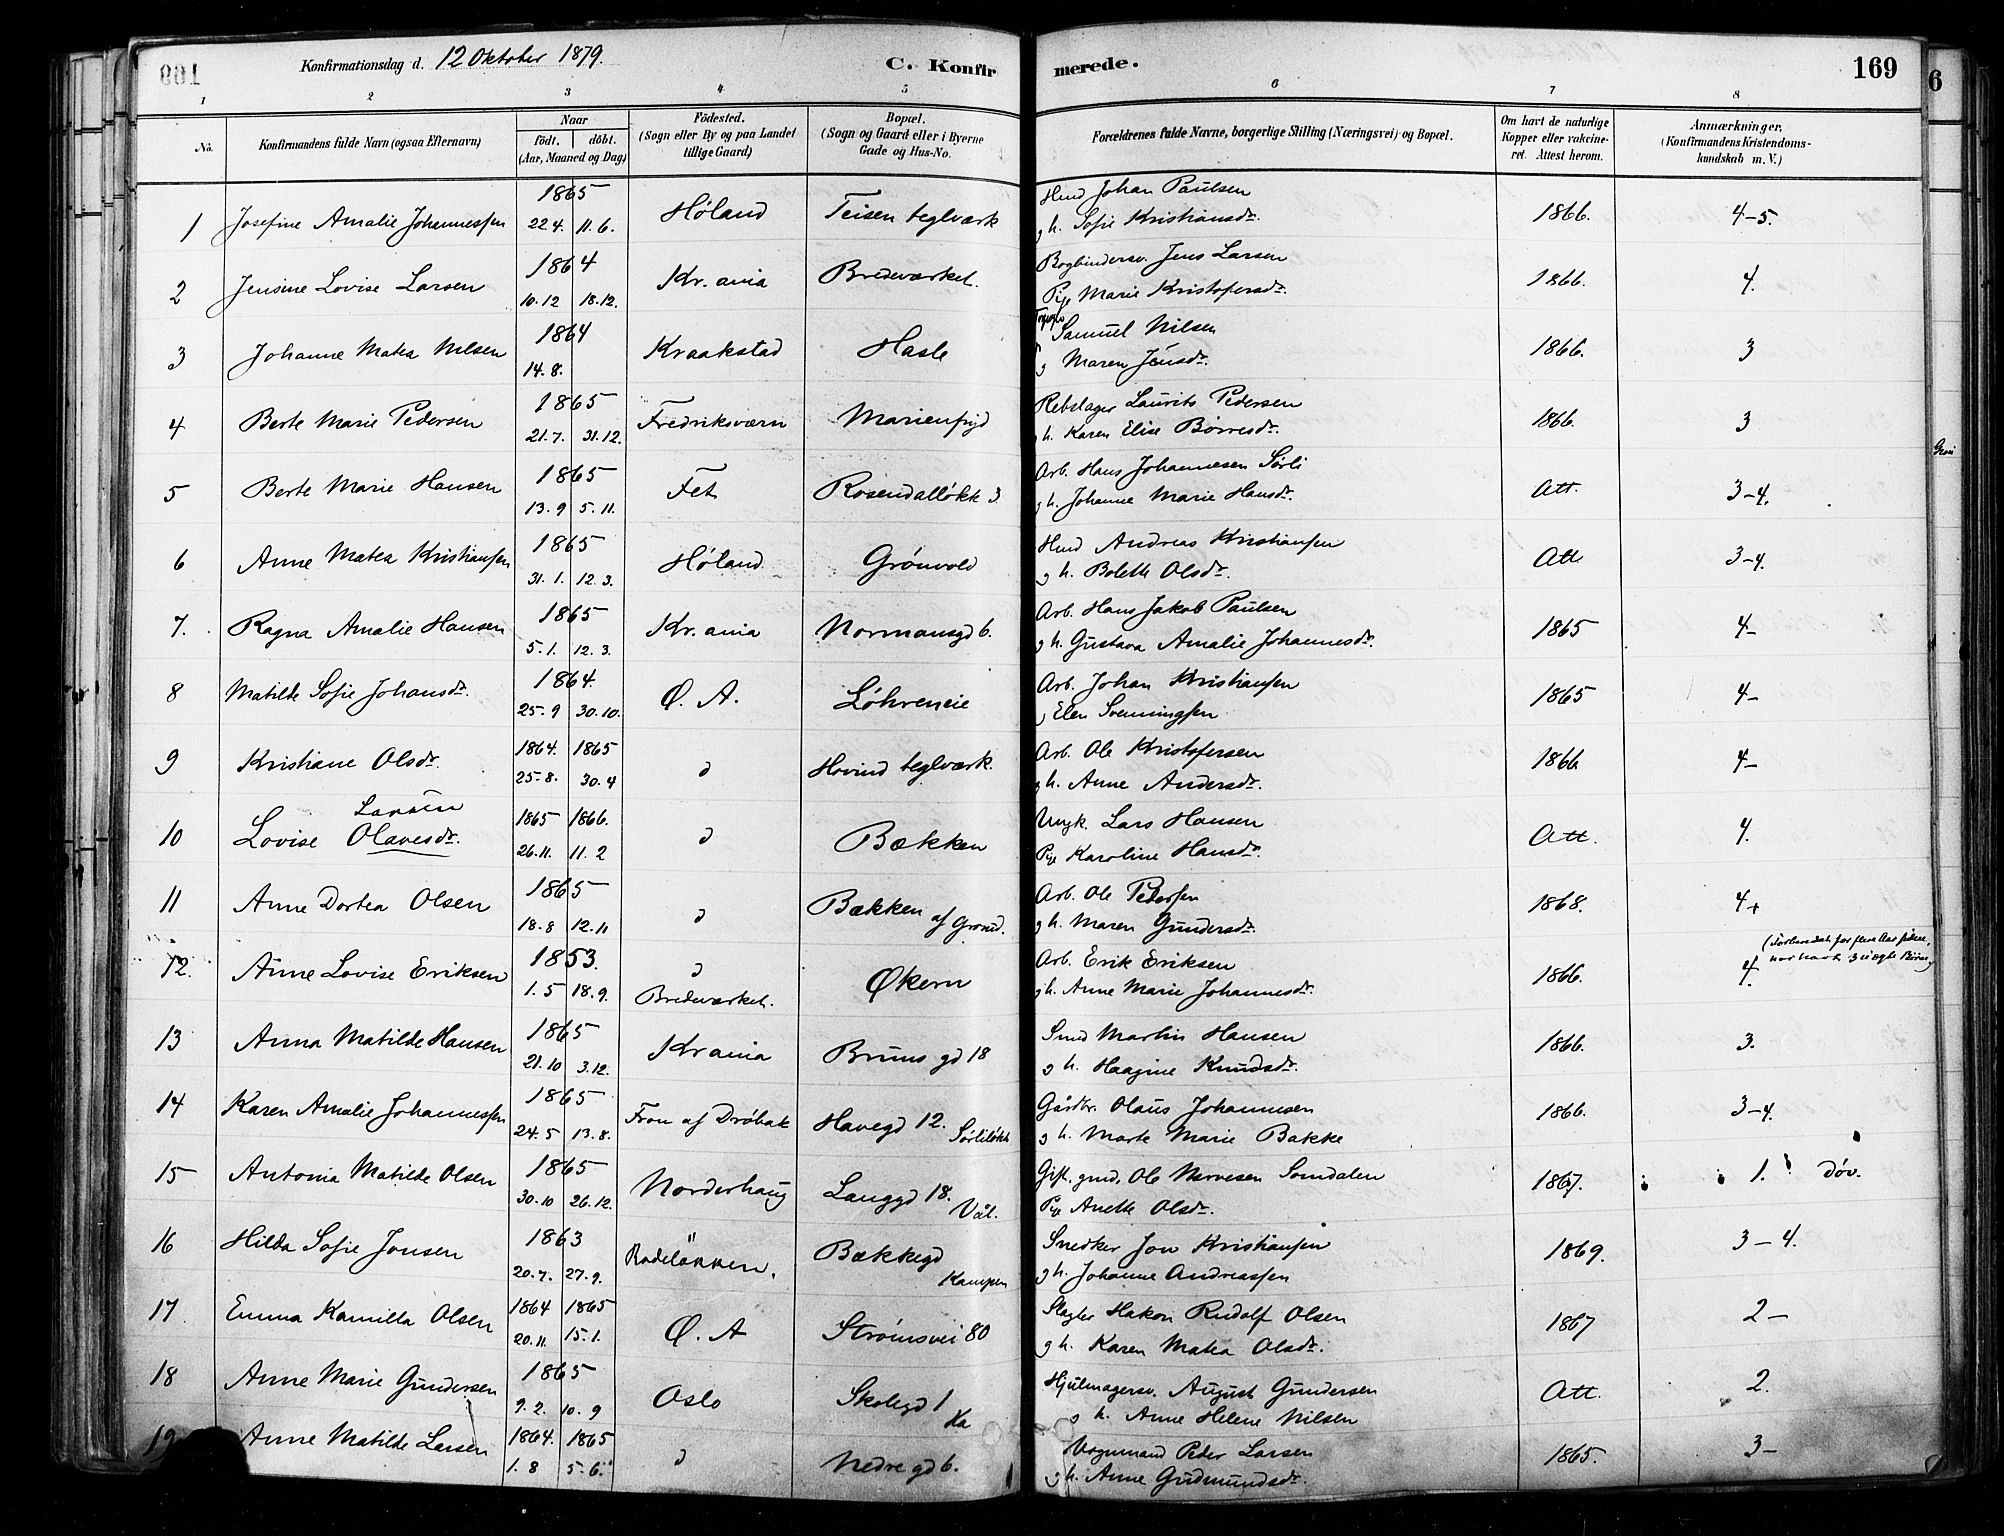 Konfirmationsdag d. 12 Oktober 1879.
C. Konfir merede.
169
1 2 3 4 5 6 7 8
No.
Konfirmandens fulde Navn (ogsaa Efternavn)
Naar
födt. döbt.
(Aar, Maaned og Dag)
Födested.
(Sogn eller By og paa Landet
tillige Gaard)
Bopæl.
(Sogn og Gaard eller i Byerne
Gade og Hus-No.
Forældrenes fulde Navne, borgerlige Stilling (Næringsvei) og Bopæl.
Om havt de naturlige
Kopper eller vakcine-
ret. Attest herom.
Anmærkninger,
(Konfirmandens Kristendoms-
kundskab m. V.)
1 Josefine Amalie Johannessen 1865 22.4. 11.6. Høland Teisen teglværk Hmd Johan Paulsen
g h. Sofie Kristiansdr. 1866. 4-5.
2 Jensine Lovise Larsen 1864 10.12 18.12. Kr.ania Bredeværket. Bogbindersv. Jens Larsen
Pige Marie Kristofersdr. 1866. 4.
3 Johanne Matea Nilsen 1864 14.8. Kraakstad Hasle Samuel Nilsen
g Maren Jensdr. 1866. 3
4 Berte Marie Pedersen 1865 21.7. 31.12. Fredriksværn Marienfryd Rebslager Laurits Pedersen
g h. Karen Elise Børresdr. 1866. 3
5 Berte Marie Hansen 1865 13.9 5.11. Fet Rosendalløkk 3 Arb. Hans Johannesen Sørli
g h. Johanne Marie Hansdr. Att. 3-4.
6 Anne Matea Kristiansen 1865 31.1. 12.3. Høland Grønvold Hmd Andreas Kristiansen
g h. Bolette Olsdr. Att 3-4.
7. Ragna Amalie Hansen 1865 5.1. 12.3. Kr.ania Normansgd 6. Arb. Hans Jakob Paulsen
g h. Gustava Amalie Johannesdr. 1865 4-
8 Matilde Sofie Johansdr. 1864. 25.9 30.10. Ø. A. Løhreneie Arb. Johan Kristiansen
g Elen Svenningsen 1865 4-
9 Kristiane Olsdr. 1864. 1865 25.8. 30.4 d Hovind teglværk. Arb. Ole Kristofersen
g h. Anne Andersdr. 1866 4-
10 Lovise Olavesdr. Larsen 1865 1866. 26.11. 11.2 d Bækken Ungk. Lars Hansen
Pige Karoline Hansdr. Att. 4.
11 Anne Dortea Olsen 1865 18.8 12.11 d Bækken af Grønd. Arb. Ole Pedersen
g h. Maren Gundersdr. 1868. 4+
12. Anne Lovise Eriksen 1853. 1.5 18.9. d Bredeværket. Økern Arb. Erik Eriksen
g h. Anne Marie Johannesdr. 1866. 4. (Forberedt for flere Aar siden, har havt 3 uægte Børn)
13 Anna Matilde Hansen 1865 21.10 3.12. Krania Bruns gd 18 Smed Martin Hansen
g h. Haagine Knudsdr. 1866. 3.
14 Karen Amalie Johannessen 1865 24.5 13.8. Fron af Drøbak Havegd 12. Sørliløkk Gårdbr. Olaus Johannesen
g h. Marte Marie Bakke 1866. 3-4.
15 Antonia Matilde Olsen 1865 30.10 26.12. Norderhaug Langgd 18. Vål. Gift. gmd. Ole Narvesen Somdalen
Pige Anette Olsdr. 1867. 1. Døv.
16 Hilda Sofie Jonsen 1863 20.7. 27.9. Rodeløkken. Bækkegd Kampen Snedker Jon Kristiansen
g h. Johanne Andreassen 1869. 3-4.
17 Emma Kamilla Olsen 1864 1865 20.11. 15.1. Ø. A Strømsvei 80 Slagter Hakon Rudolf Olsen
g h. Karen Matea Olsdr. 1867 2-
18 Anne Marie Gundersen 1865 9.2. 10.9 Oslo Skolegd 1 Ka Hjulmagersv. August Gundersen
g h. Anne Helene Nilsen Att. 2.
19 Anne Matilde Larsen 1864. 1865 1.8 5.6. d Nedregd 6. Vognmand Peder Larsen
g h. Anne Gudmundsdr. 1865. 3-